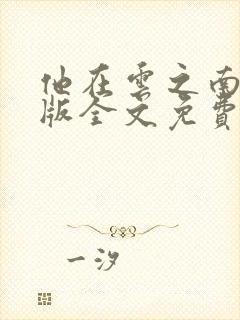 他在雲之南
版全文免費
一汐